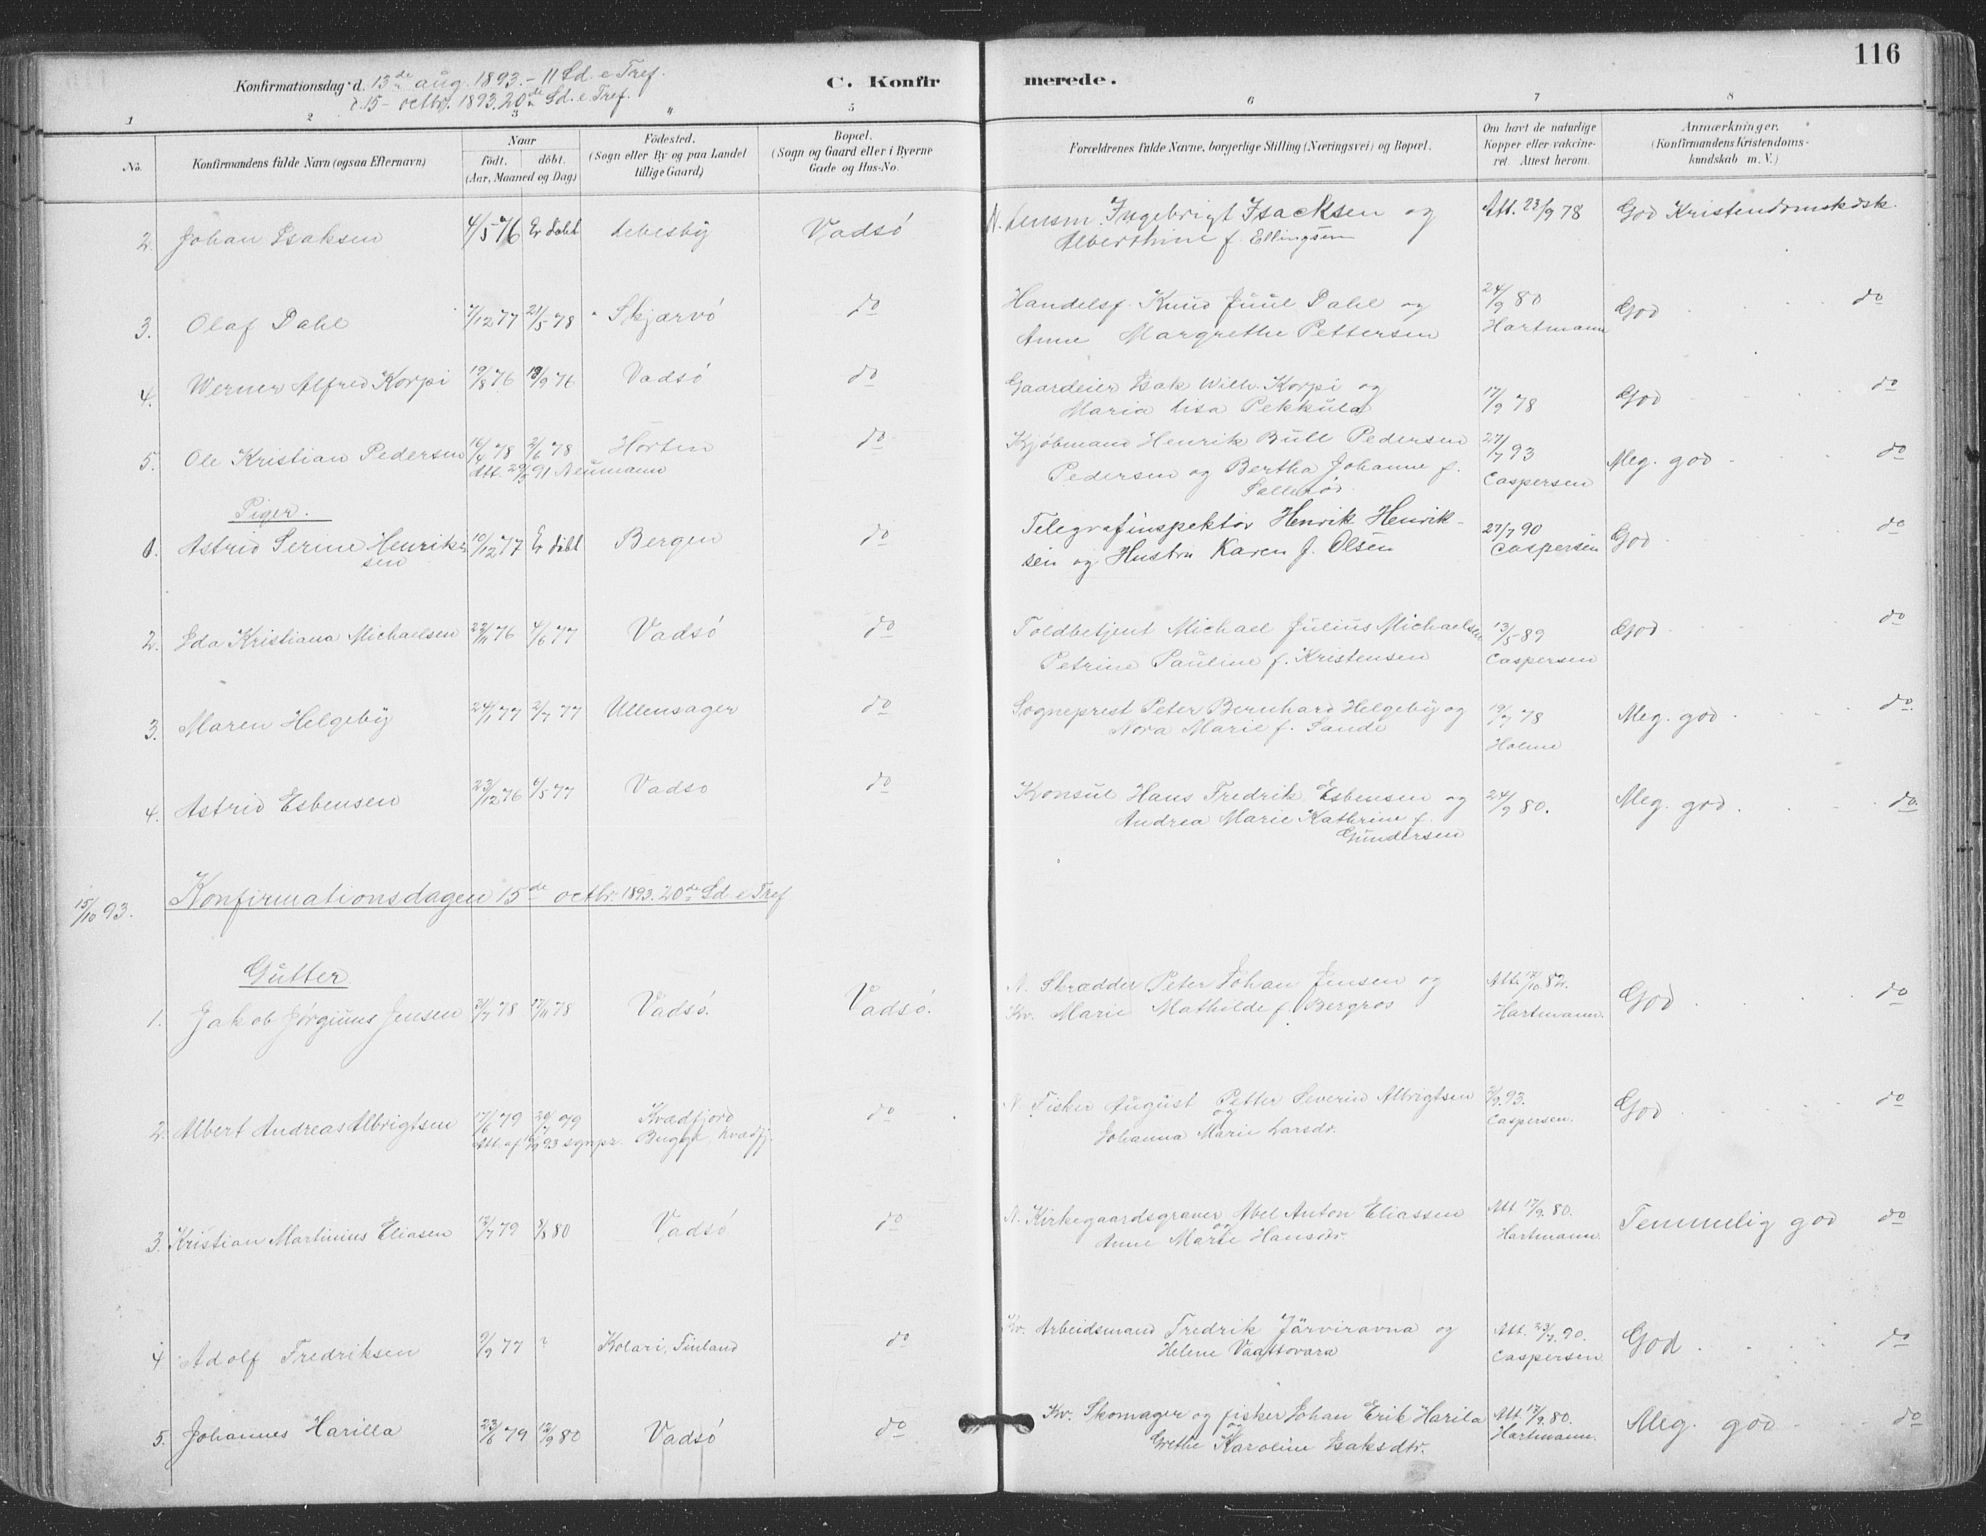 116
Konfirmationsdag d. 13de aug. 1893. - 11 Sd. e Tref.
d. 15 - octbr. 1893. 20de Sd. e. Tref.
C. Konfirmerede.
1 2 3 4 5 6 7 8
No. Konfirmandens fulde Navn (ogsaa Efternavn) Naar Födt. döbt. (Aar, Maaned og Dag) Födested. (Sogn eller By og paa Landet tillige Gaard) Bopæl. (Sogn og Gaard eller i Byerne Gade og Hus-No. Forældrenes fulde Navne, borgerlige Stilling (Næringsvei) og Bopæl. Om havt de naturlige Kopper eller vakcineret. Attest herom. Anmærkninger. (Konfirmandens Kristendomskundskab m. V.)
2. Johan Isaksen 4/5 76 Er döbt Lebesby Vadsö N. Lensm. Ingebrigt Isacksen og Att. 23/9 78 God Kristendomskdsk.
Alberthine f. Ellingsen
3. Olaf Dahl 7/12 77 21/5 78 Skjærvö do Handelsf. Knud Juul Dahl og 24/9 80 God do
Anne Margrethe Pettersen Hartmann
4. Werner Alfred Korpi 19/8 76 18/9 76 Vadsö do Gaardeier Isak Wilh. Korpi og 17/9 78 God do
Maria Lisa Pekkula
5. Ole Kristian Pedersen 16/4 78 2/6 78 Horten do Kjöbmand Henrik Bull Pedersen 27/7 93 Meg. god do
Neumann Pedersen og Bertha Johanne f. Caspersen
Piger.
1. Astrid Serine Henriksen 10/12 77 Er döbt Bergen do Telegrafinspektör Henrik Henrik- 27/7 90 God do
sen og Hustru Karen f. Olsen Caspersen
2. Ida Kristiana Michaelsen 22/11 76 4/6 77 Vadsö do Toldbetjent Michael Julius Michaelsen 13/5 89 God do
Petrine Pauline f. Kristensen Caspersen
3. Maren Helgeby 24/1 77 2/7 77 Ullensager do Sogneprest Peter Bernhard Helgeby og 19/7 78 Meg. god do.
Nora Marie f. Sande Holme
4. Astrid Esbensen 23/12 76 6/5 77 Vadsö do Konsul Hans Fredrik Esbensen og 24/9 80. Meg. god do.
Andrea Marie Kathrine f.
Gundersen
15/10 93. Konfirmationsdagen 15de octbr. 1893. 20de Sd e Tref
Gutter
1. Jakob Jörginus Jensen 31/7 78 17/11 78 Vadsö. Vadsö. N. Skrædder Peter Johan Jensen og Att. 17/10 82. God do
Kv. Marie Mathilde f. Bergros Hartmann.
2. Albert Andreas Albrigtsen 17/6 79 20/7 79 Kvædfjord do N. Fisker August Petter Severin Albrigtsen 93. God do
Att. af 93 sgnpr. Bugge, Kvædfj. og Johanna Marie Larsdr. Caspersen.
3. Kristian Martinius Eliasen 13/7 79 8/8 80 Vadsö do N. Kirkegaardsgraver Abel Anton Eliassen Att 17/9. 80. Temmelig god do
og Anne Marie Hansdr. Hartmann.
4 Adolf Fredriksen 9/9 77 ? Kolari, Finland do Kv. Arbeidsmand Fredrik Järviravna og Att. 23/7. 90. God do
Helene Vaattovara Caspersen.
5. Johannes Harilla 23/6 79 12/9 80 Vadsö do Kv. Skomager og fisker Johan Erik Harila Att. 17/9. 80. Meg. god do
og Grethe Karoline Isaksdtr. Hartmann.